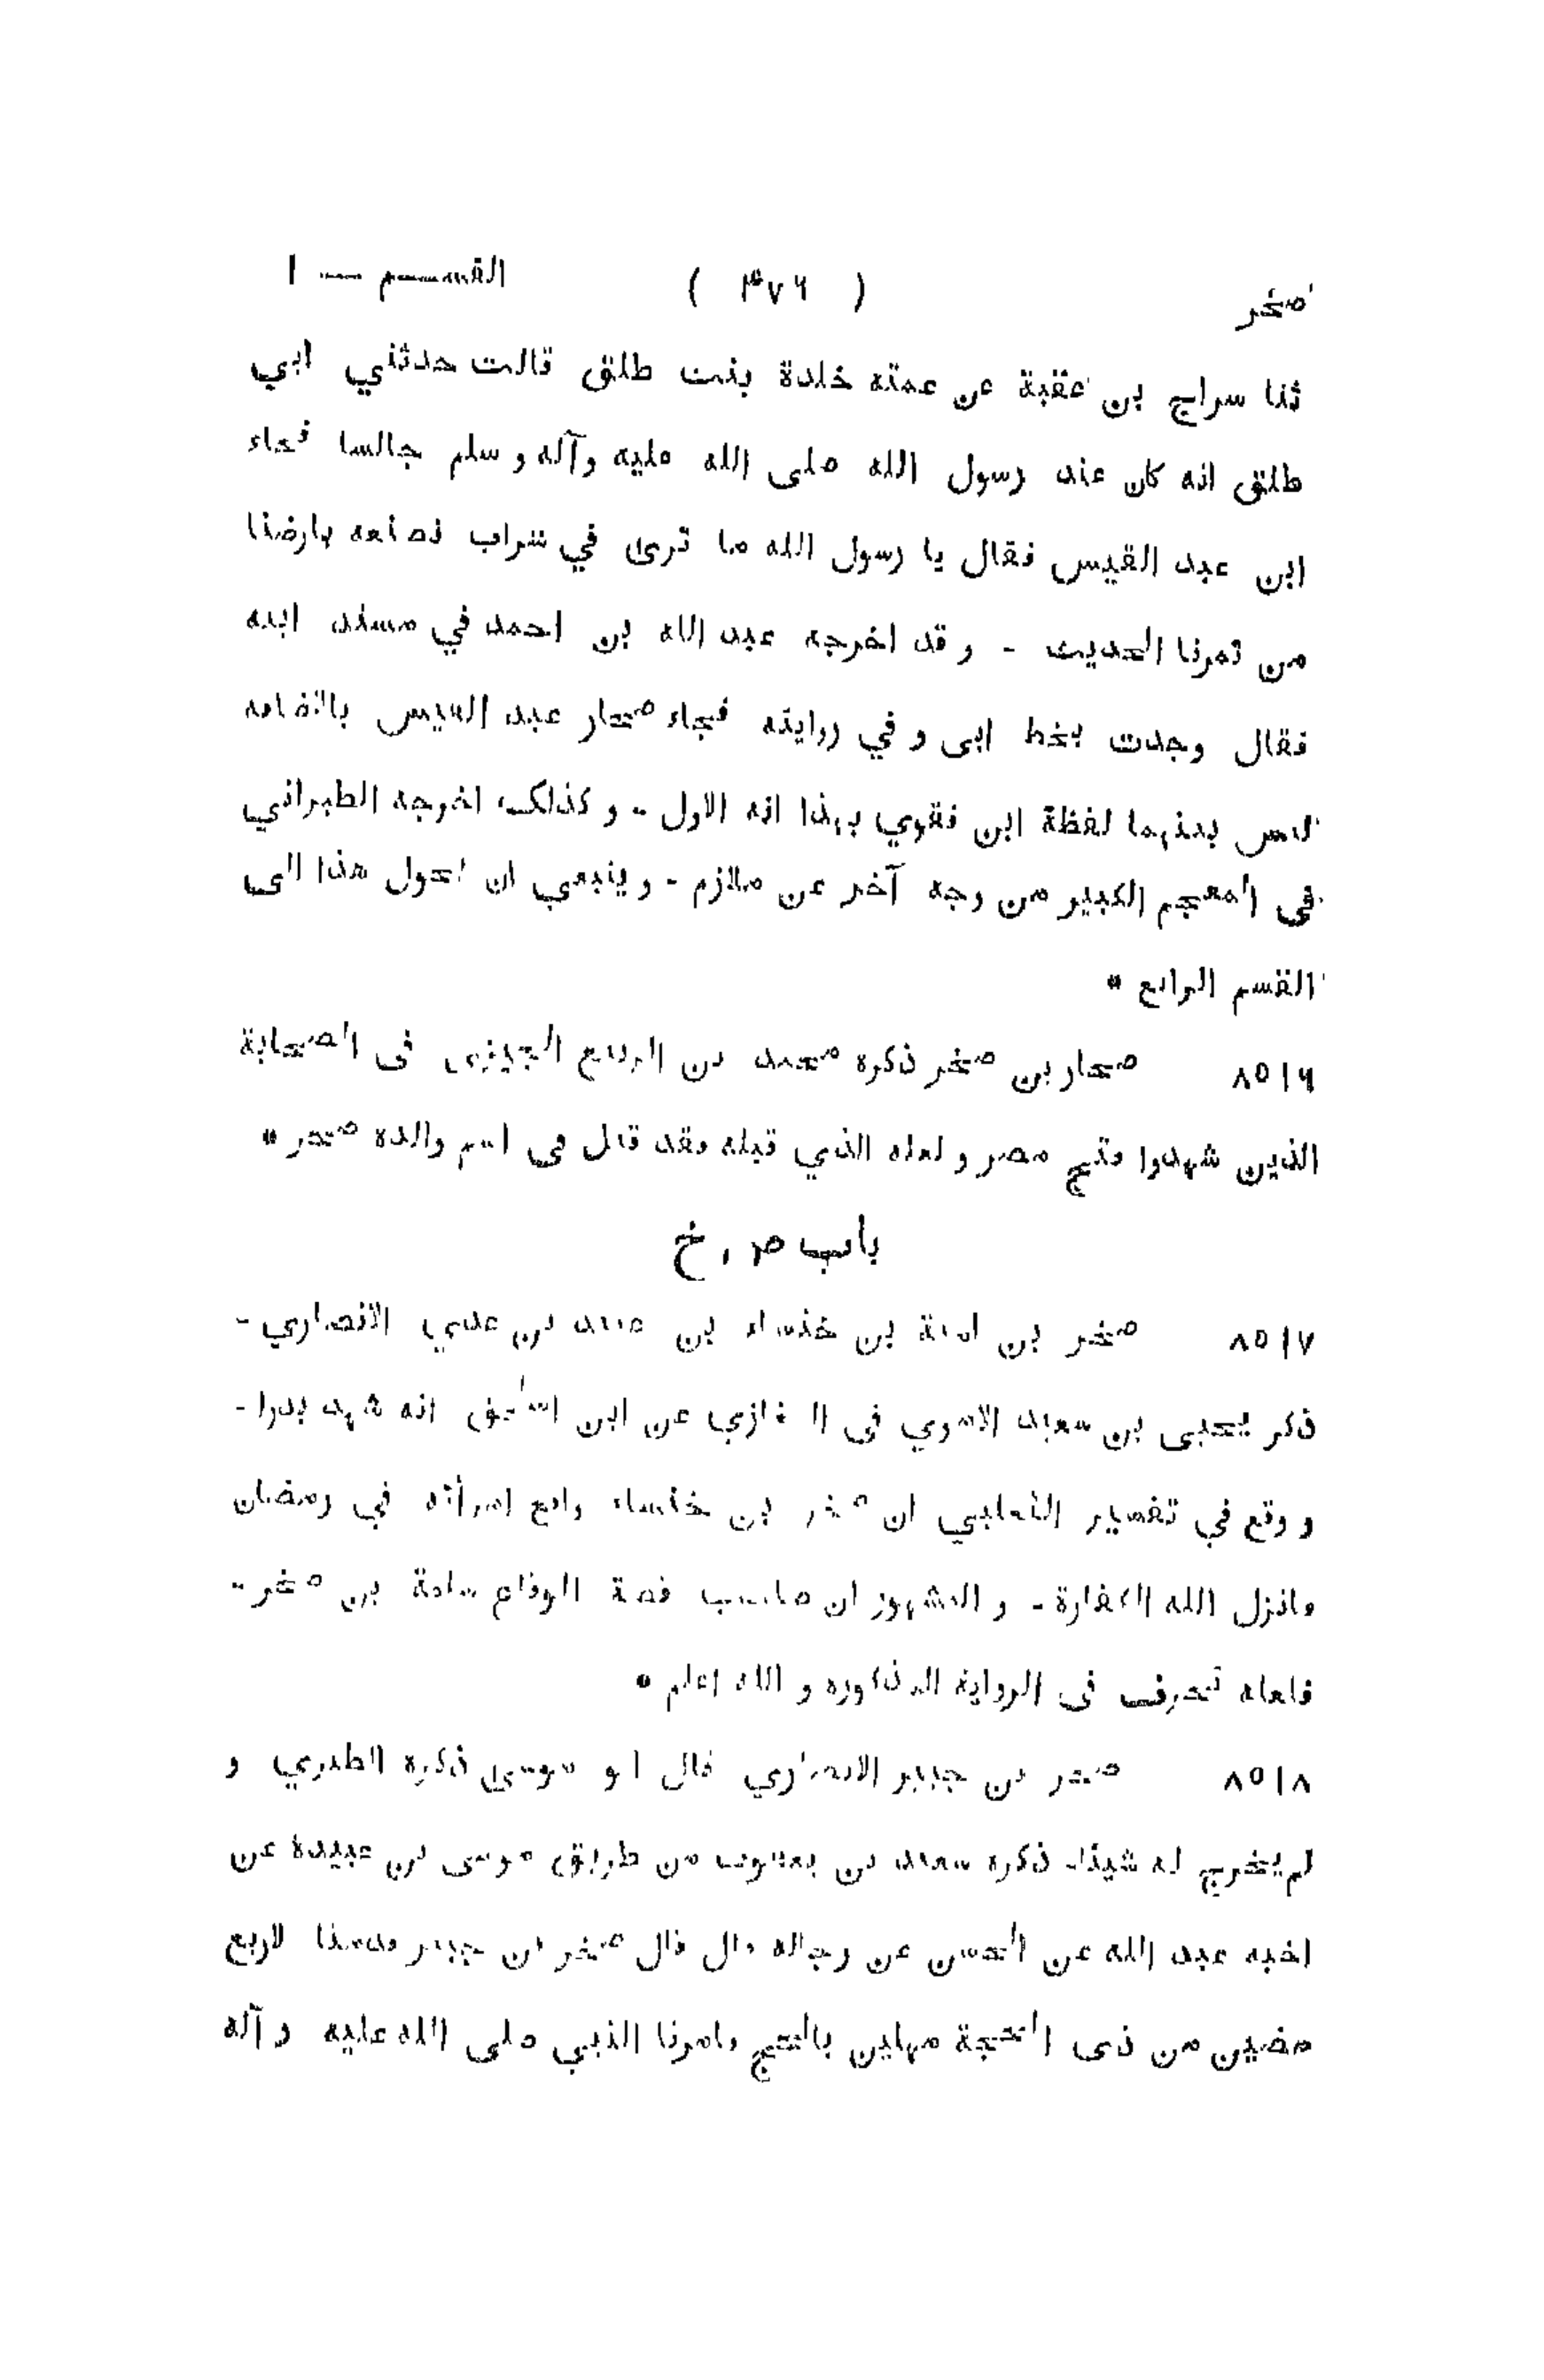 صخر ( ۴۷۶ ) القسم — ا
ثنا سراج بن عقبة عن عمته خلدة بنت طلق قالت حدثني ابي
طلق انه كان عند رسول الله صلى الله عليه وآله و سلم جالسا فجاء
ابن عبد القيس فقال يا رسول الله ما ترى في شراب نصنعه بارضنا
من تمرنا الحديث - و قد اخرجه عبد الله بن احمد في مسند ابيه
فقال وجدت بخط ابى و في روايته فجاء صحار عبد القيس بالقضامه
ليس بينهما لفظة ابن فقوي بهذا انه الاول - و كذلك اخرجه الطبراني
في المعجم الكبير من وجه آخر عن ملازم - و ينبغي ان احول هذا الى
القسم الرابع *
٨٥١٦ صحار بن صخر ذكره محمد بن الربيع الجيزى فى الصحابة
الذين شهدوا فتح مصر و لعله الذي قبله فقد قيل فى اسم والده صخر *
باب ص ، خ
٨٥١٧ صخر بن امية بن خنساء بن عبيد بن عدي الانصاري -
ذكر يحيى بن سعيد الاموي فى المغازي عن ابن اسحق انه شهد بدرا -
و وقع في تفسير الثعلبي ان صخر بن خنساء واقع امرأته في رمضان
فانزل الله الكفارة - و المشهور ان صاحب قصة الوقاع سلمة بن صخر -
فلعله تحرف فى الرواية المذكوره و الله اعلم *
٨٥١٨ صخر بن جبير الانصاري قال ابو موسى ذكره الطبري و
لم يخرج له شيئا ذكره سعيد بن يعقوب من طريق موسى بن عبيدة عن
اخيه عبد الله عن الحسن عن رجاله قال قال صخر بن جبير قدمنا لاربع
مضين من ذى الحجة مهلين بالحج فامرنا النبي صلى الله عليه و آله